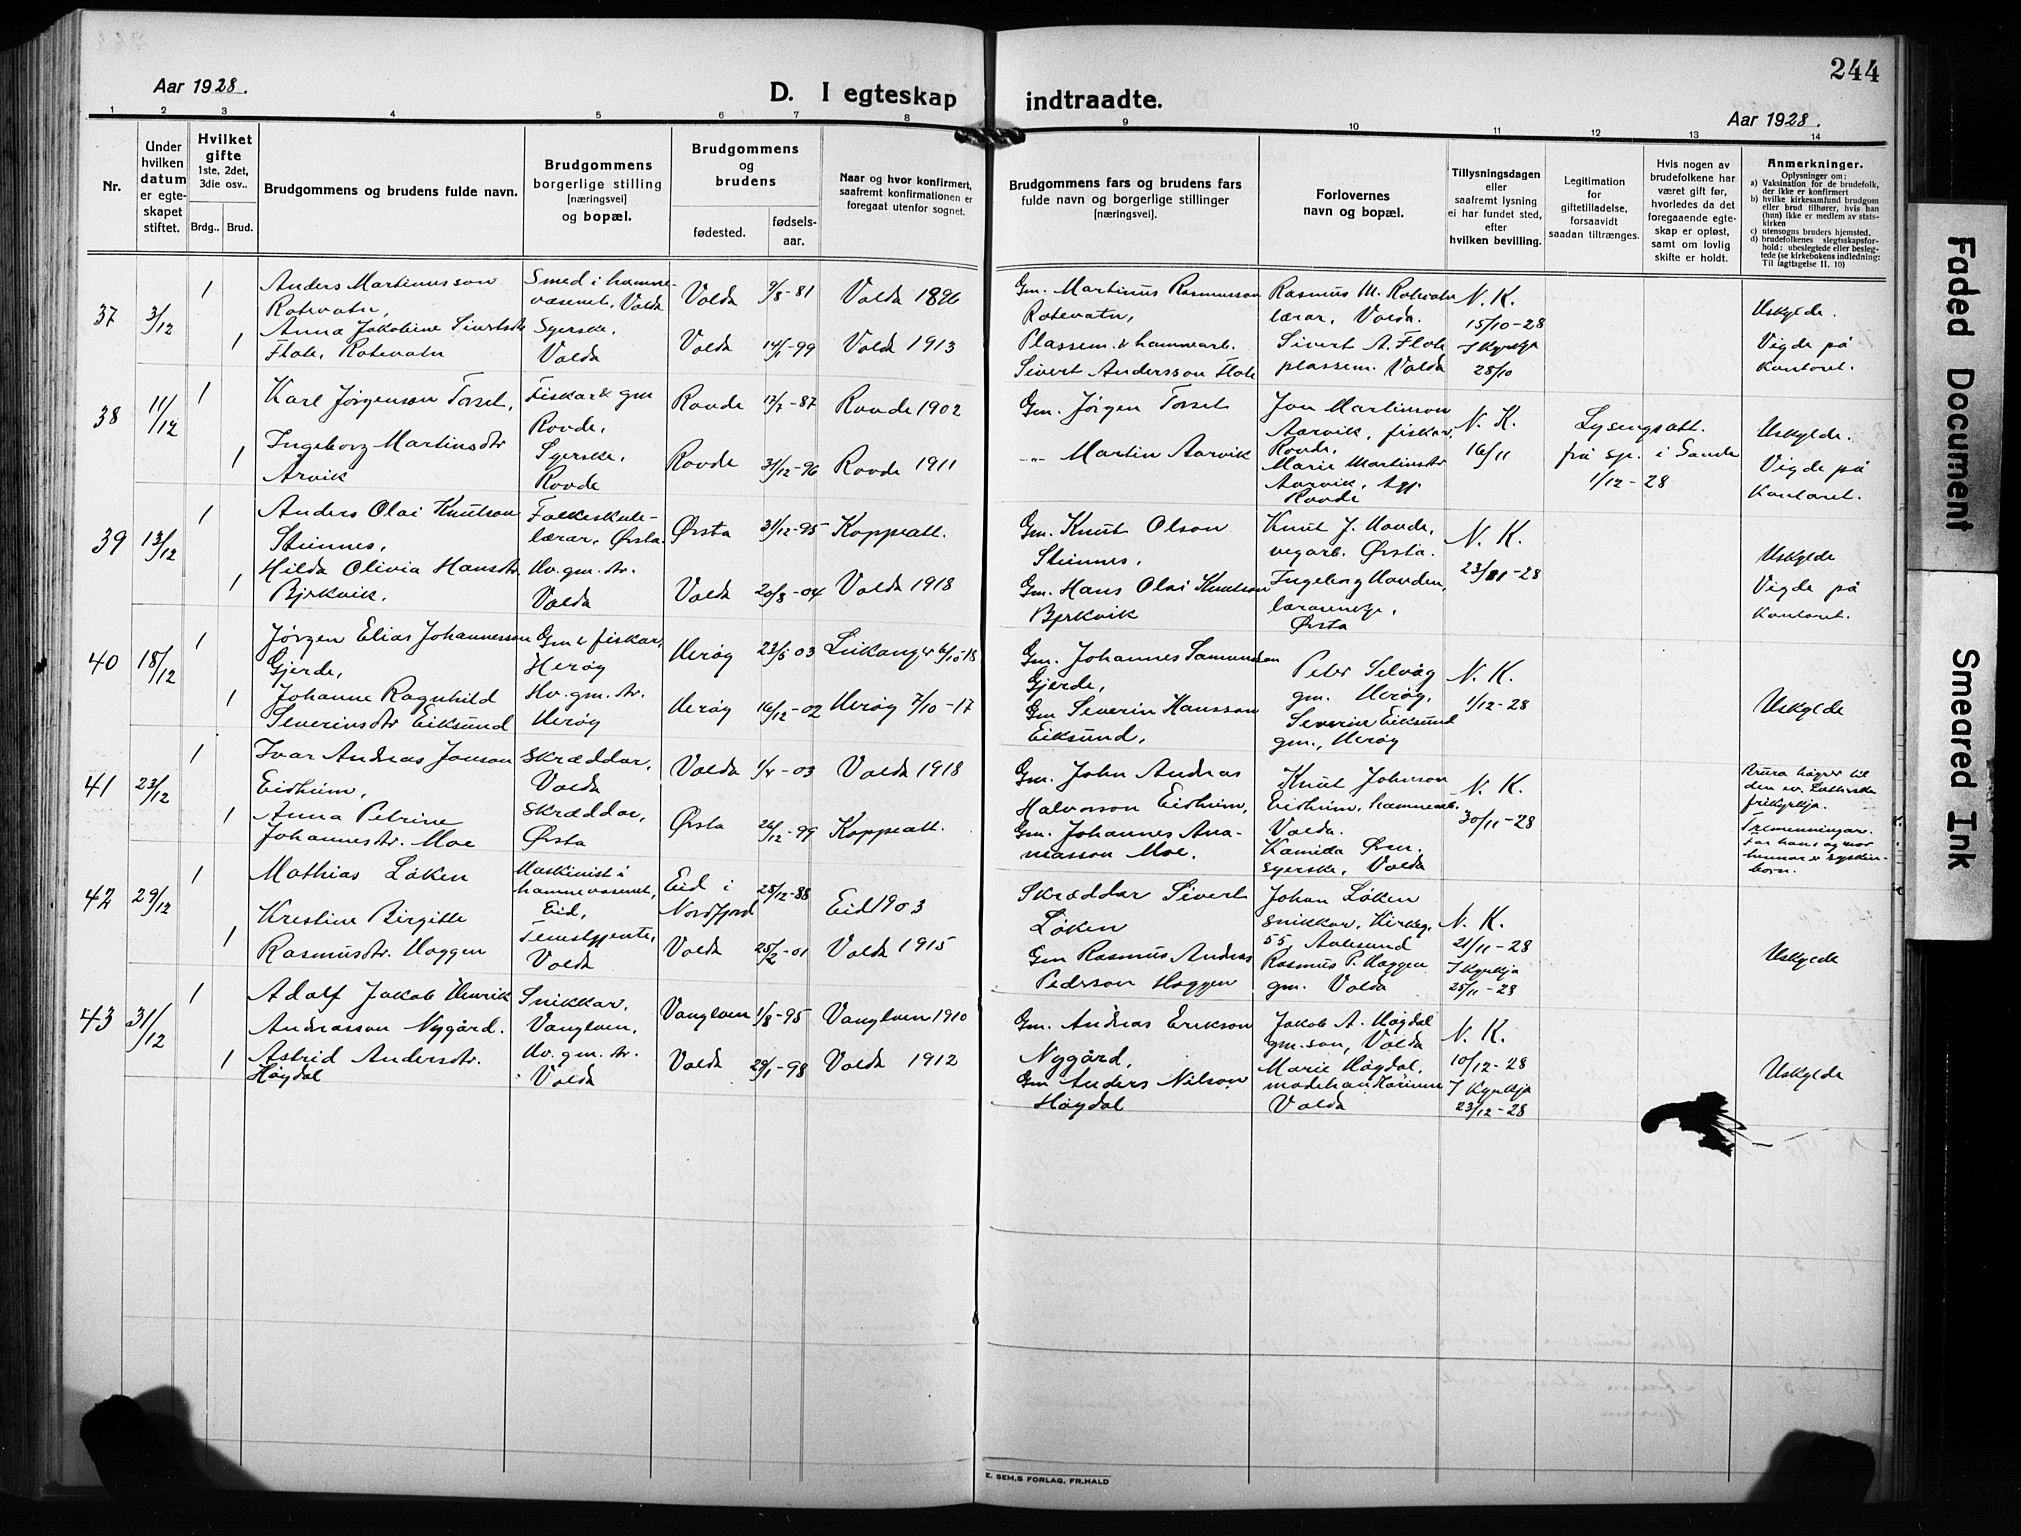 244
Aar 1928.
D. I egteskap indtraadte.
Aar 1928.
1 2 3 4 5 6 7 8 9 10 11 12 13 14
Nr.
Under hvilken datum er egteskapet stiftet.
Hvilket gifte 1ste, 2det, 3die osv..
Brdg.. Brud.
Brudgommens og brudens fulde navn.
Brudgommens borgerlige stilling [næringsvei] og bopæl.
Brudgommens og brudens
fødested.
fødsels-aar.
Naar og hvor konfirmert, saafremt konfirmationen er foregaat utenfor sognet.
Brudgommens fars og brudens fars fulde navn og borgerlige stillinger [næringsvei].
Forlovernes navn og bopæl.
Tillysningsdagen eller saafremt lysning ei har fundet sted, efter hvilken bevilling.
Legitimation for giftetilladelse, forsaavidt saadan tiltrænges.
Hvis nogen av brudefolkene har været gift før, hvorledes da det foregaaende egteskap er opløst, samt om lovlig skifte er holdt.
Anmerkninger.
Oplysninger om:
a) Vaksination for de brudefolk, der ikke er konfirmert
b) hvilke kirkesamfund brudgom eller brud tilhører, hvis han (hun) ikke er medlem av statskirken
c) utensogns bruders hjemsted.
d) brudefolkenes slegtsskapsforhold: ubeslegtede eller beslegtede (se kirkebokens indledning: Til iagttagelse II. 10)
37 3/12
1 Anders Martinusson Rotevatn,
Smed i hamnevæsenet, Volda
Volda 9/8-81 Volda 1896
1 Anna Jakobine Sivertsdtr Flote, Rotevatn
Syerske, Volda
Volda 14/1-99 Volda 1913
Gm. Martinus Rasmusson Rotevatn,
Plassem. & hamnearb. Sivert Andersson Flote
Rasmus M. Rotevatn lærar, Volda.
Sivert A. Flote plassem. Volda
N. K. 15/10-28
I Kyrkja 28/10
Uskylde. Vigde på kontoret.
38 11/12
1 Karl Jørgenson Torset,
Fiskar & gm Rovde,
Rovde 17/7-87 Rovde 1902
1 Ingeborg Martinsdtr Arvik
Syerske, Rovde
Rovde 31/12-96 Rovde 1911
Gm. Jørgen Torset
-"- Martin Aarvik
Jon Martinson Aarvik, fiskar, Rovde,
Marie Martinsdtr Aarvik, Rovde
N. K. 16/11
Lysingsatt. frå sp. i Sande 1/12-28
Uskylde. Vigde på kontoret.
39 13/12
1 Anders Olai Knutson Steinnes,
Folkeskulelærar, Ørsta.
Ørsta 31/12-95 Koppeatt.
1 Hilda Olivia Hansdtr. Bjrkvik.
Hv. gm. dtr. Volda
Volda 20/8-04 Volda 1918
Gm. Knut Olson Steinnes,
Gm. Hans Olai Knutson Bjrkvik
Knut J. Hovde, vegarb. Ørsta.
Ingeborg Hovden, Ørsta
N. K. 23/11-28
Uskylde Vigde på kontoret.
40 18/12
1 Jørgen Elias Johannesson Gjerde,
Gm & fiskar, Herøy
Herøy 23/5-03 Leikanger 6/10-18
1 Johanne Ragnhild Severinsdtr Eiksund
Hv. gm. dtr. Herøy
Herøy 16/12-02 Herøy 7/10-17
Gm. Johannes Samundson Gjerde,
Gm Severin Hansson Eiksund,
Peter Selvåg gm. Herøy,
Severin Eiksund gm., Herøy
N. K. 1/12-28
Uskylde
41 23/12
1 Ivar Andreas Jonson Eidheim,
Skræddar, Volda
Volda 1/4-03 Volda 1918
1 Anna Petrine Johannesdtr. Moe
Skræddar, Ørsta
Ørsta 26/12-99 Koppeatt.
Gm. John Andreas Halvorson Eidheim,
Gm. Johannes Ananiasson Moe.
Knut Johnson Eidheim, hamnearb. Volda.
syerske, Volda
N. K. 30/11-28
Brura høyrer til den ev. Lutherske frikyrkja.
Tremenningar. Far hans og mor hennar er syskinborn.
42 29/12
1 Mathias Løken
Maskinist i hamnevæsenet, Eid,
Eid i Nordfjord 28/12-88 Eid 1903
1 Kristine Birgitte Rasmusdtr. Hoggen
Tenestjente, Volda
Volda 25/2-01 Volda 1915
Skræddar Sivert Løken
Gm Rasmus Andreas Pederson Hoggen
Johan Løken snikkar, Kirkeg. 55, Aalesund
Rasmus P. Hoggen gm. Volda
N. K. 21/11-28
I Kyrkja 25/11-28
Uskylde
43 31/12
1 Adolf Jakob Henrik Andreasson Nygård.
Snikkar, Vanylven,
Vanylven 1/8-95 Vanylven 1910
1 Astrid Andersdtr. Høydal
Hv. gm. dtr. Volda
Volda 29/1-98 Volda 1912
Gm. Andreas Erikson Nygård,
Gm Anders Nilson Høydal
Jakob A. Høydal gm.son, Volda
Marie Høydal, Volda
N. K. 10/12-28
I Kyrkja 23/12-28
Uskylde
E. SEM.S FORLAG, FR.HALD
Faded Document
Smeared Ink